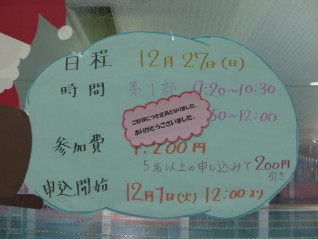 日程 12月27日(日)
時間 第1部 9:20~10:30
ご好評につき定員となりました。
ありがとうございました。
50~12:00
参加費 1,200円
5名以上の申し込みで200円
引き
申込開始 12月1日(火) 12:00より